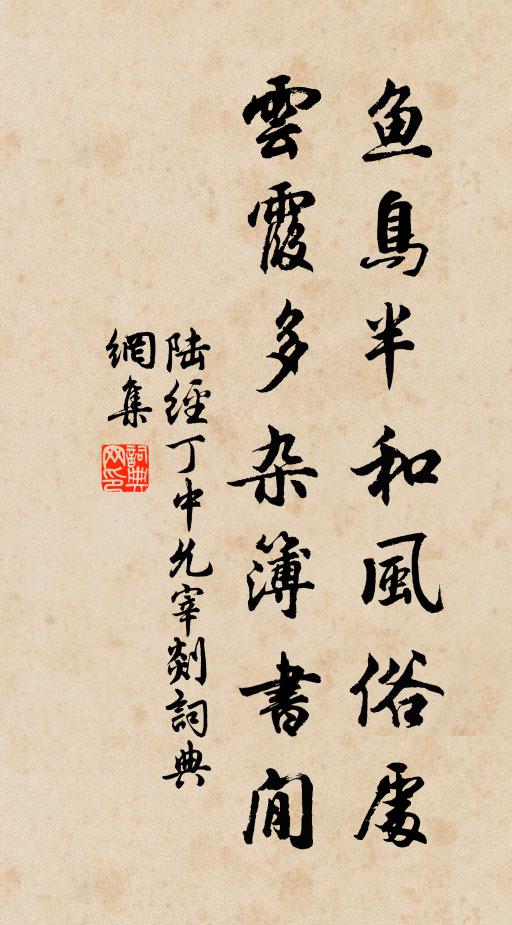 鱼鳥半和風俗處
雲霞多杂簿書間
陆經丁中允宰剡詞典
網集
詞典
网印